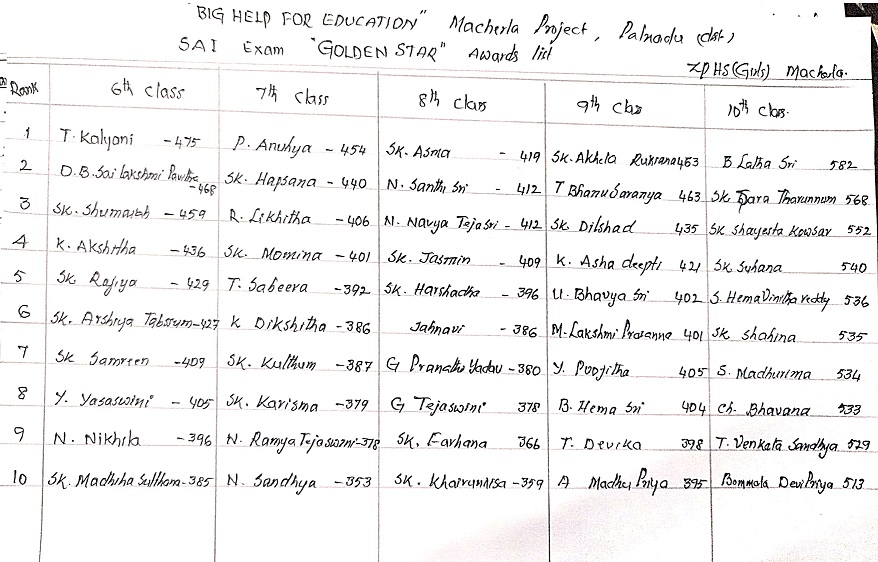 "BIG HELP FOR EDUCATION" Macherla Project, Palnadu (dist.)
SAI Exam "GOLDEN STAR" Awards list
ZPHS(Girls) Macherla.
Rank 6th class 7th class 8th class 9th class 10th class.
1 T. Kalyani - 475 P. Anuhya - 454 SK. Asma - 419 SK. Akhela Ruksana 453 B Latha Sri 582
2 D.B. Sai lakshmi - 468 SK. Hapsana - 440 N. Santhi Sri - 412 T Bhanu Saranya 463 SK Tharunnum 568
3 SK. - 459 R. Likhitha - 406 N. Navya TejaSri - 412 SK Dilshad 435 SK Shayesta Kowsar 552
4 K. Akshitha - 436 SK. Momina - 401 SK. Jasmin - 409 K. Asha deepti 421 SK Suhana 540
5 SK Rajiya - 429 T. Sabeera - 392 SK. Harshadha - 396 U. Bhavya Sri 402 S. HemaVinitha reddy 536
6 SK. Arshiya Tabsum - 427 K Dikshitha - 386 Jahnavi - 386 M. Lakshmi Prasanna 401 SK Shahina 535
7 SK Samreen - 409 SK. Kulthum - 387 G Pranathi Yadav - 380 Y. Poojitha 405 S. Madhurima 534
8 Y. Yasaswini - 405 SK. Karisma - 379 G Tejaswini 378 B. Hema Sri 404 Ch. Bhavana 533
9 N. Nikhila - 396 N. Ramya Tejaswini - 378 SK. Farhana 366 T. Devika 398 T. Venkata Sandhya 529
10 SK. Madhiha Sulthana - 385 N. Sandhya - 353 SK. Khairunnisa - 359 A Madhu Priya 395 Bommala DeviPriya 513